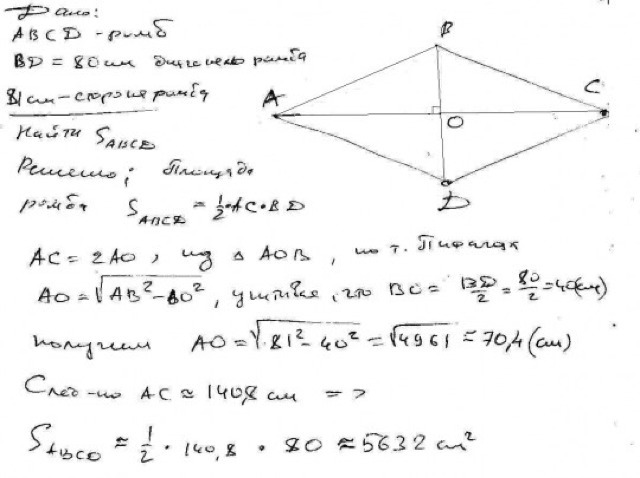 Дано:
ABCD - ромб
BD = 80 см диагональ ромба
81 см - сторона ромба
Найти S_ABCD
Решение: Площадь
ромба S_ABCD = 1/2 · AC · BD
AC = 2AO, из △ AOB, по т. Пифагора
AO = √(AB² - BO²), учитывая, что BO = BD/2 = 80/2 = 40 (см)
получим AO = √(81² - 40²) = √4961 ≈ 70,4 (см)
След-но AC ≈ 140,8 см =>
S_ABCD ≈ 1/2 · 140,8 · 80 ≈ 5632 см²
B
A
C
O
D